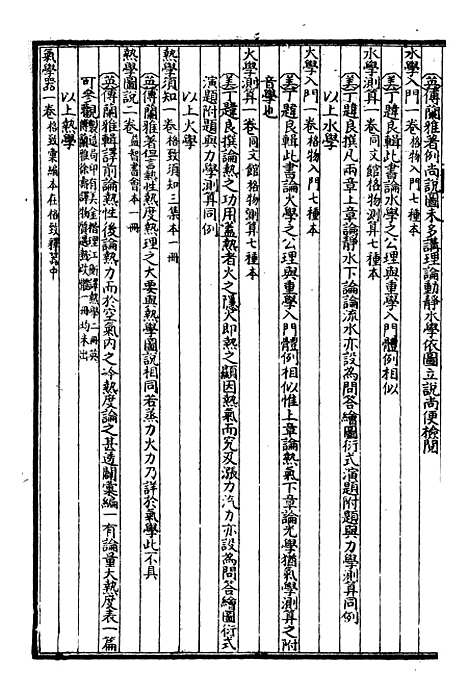 英傅蘭雅著例尚說圖未多講理論動靜水學依圖立說尚便檢閱
水學入門一卷格物入門七種本
美丁韙良輯此書論水學之公理與重學入門體例相似
水學測算一卷同文館格物測算七種本
美丁韙良撰凡兩章上章論靜水下論論流水亦設為問答繪圖衍式演題附題與力學測算同例
以上水學
火學入門一卷格物入門七種本
美丁韙良輯此書論火學之公理與重學入門體例相似惟上章論熱氣下章論光學猶氣學測算之附
音學也
火學測算一卷同文館格物測算七種本
美丁韙良撰論熱之功用蓋熱者火之隱火即熱之顯因熱氣而究及漲力汽力亦設為問答繪圖衍式
演題附題與力學測算同例
以上火學
熱學須知一卷格致須知三集本一冊
英傅蘭雅著言熱性熱度熱理之大要與熱學圖說相同若蒸力火力乃詳於氣學此不具
熱學圖說二卷益智書會本一冊
英傅蘭雅輯譯前論熱性後論熱力而於空氣內之冷熱度論之甚透闢彙編一有論量大熱度表一篇
可參觀製造局甲有大金楷理江衡譯熱學二冊英
傅蘭雅徐壽譯物質遇熱改體一冊均未出
以上熱學
氣學器一卷格致彙編本在格致釋器中